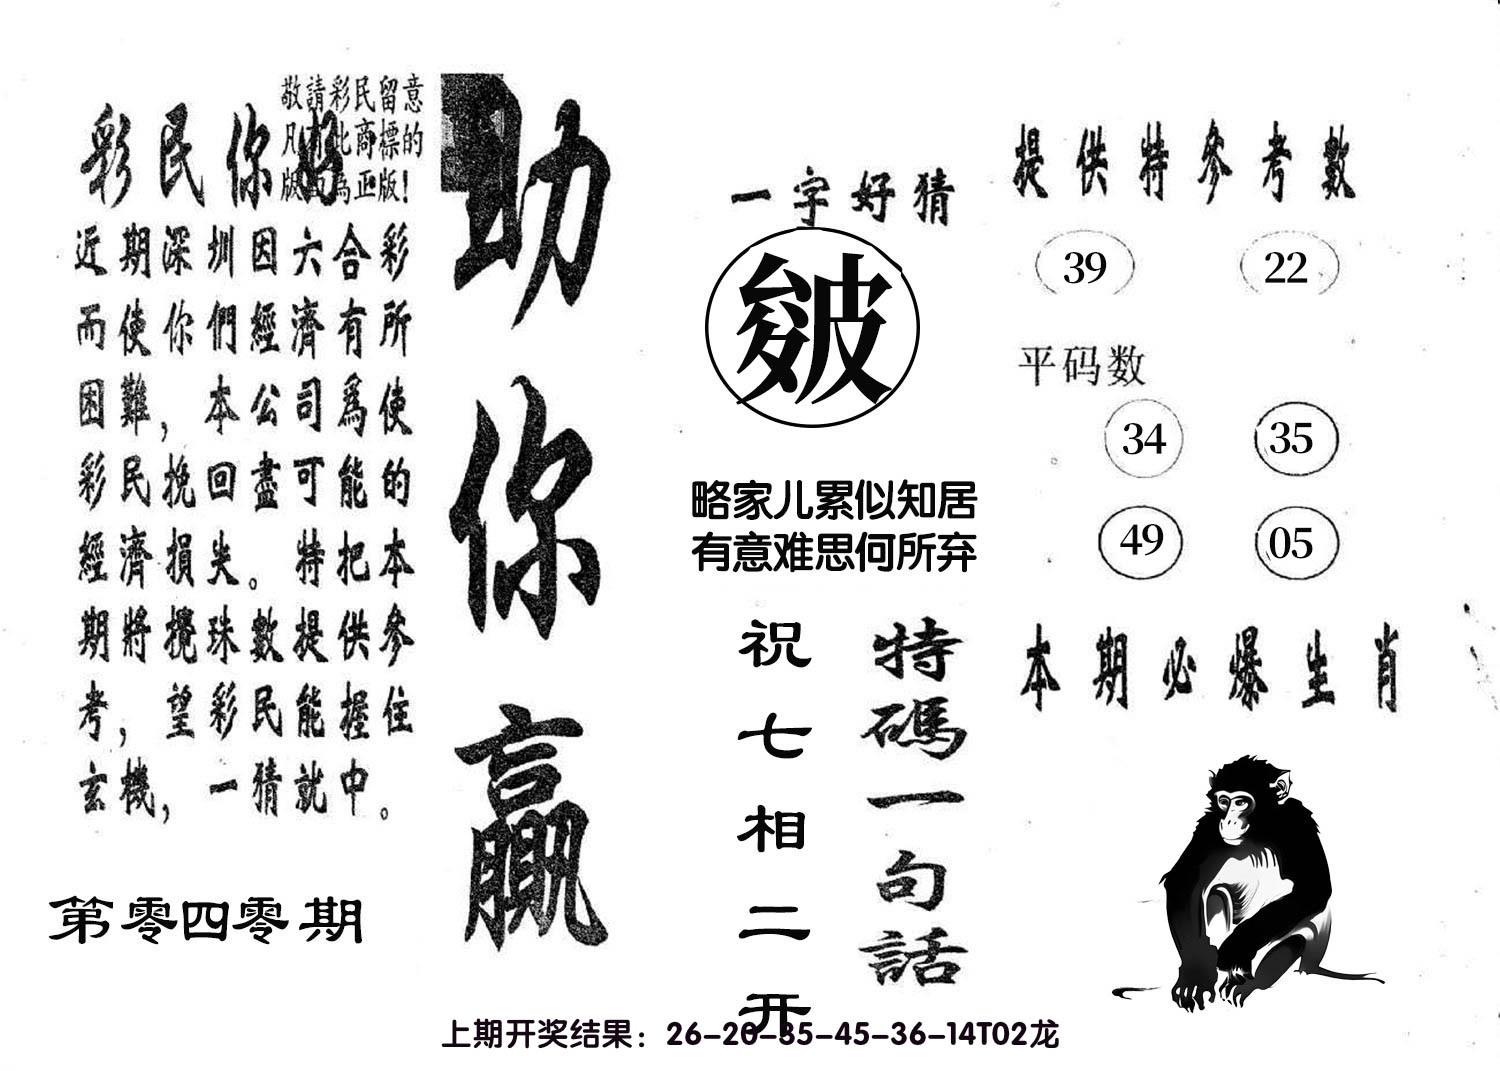 敬請彩民留意
凡有此商標的
版面為正版!
彩民你好
近期深圳因六合彩
而使你們經濟有所
困難，本公司爲使
彩民挽回盡可能的
經濟損失。特把本
期將攪珠數提供參
考，望彩民能握住
玄機，一猜就中。
第零四零期
助你贏
一字好猜
皴
略家儿累似知居
有意难思何所弃
特碼一句話
祝七相二开
提供特參考數
39 22
平码数
34 35
49 05
本期必爆生肖
上期开奖结果：26-20-35-45-36-14T02龙